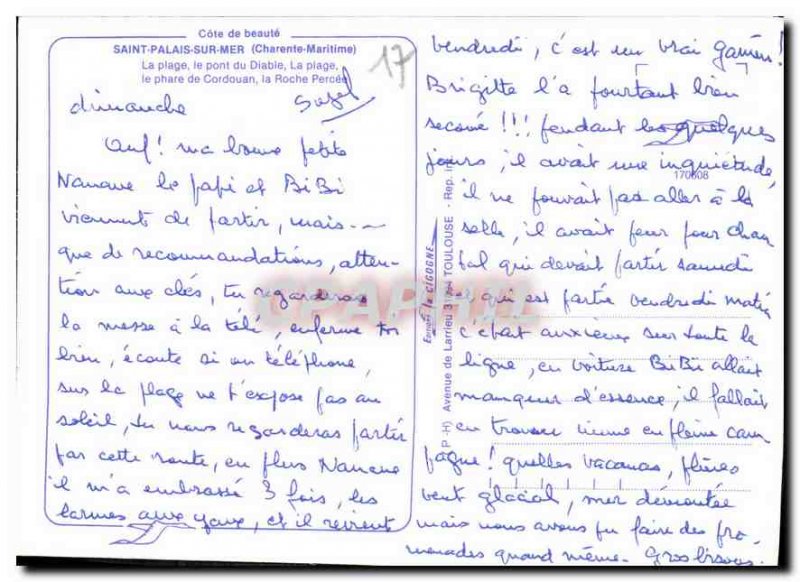 Côte de beauté
SAINT-PALAIS-SUR-MER (Charente-Maritime)
La plage, le pont du Diable, La plage,
le phare de Cordouan, la Roche Percée
17
dimanche
Ouf! ma bonne petite
Nanane le papi et BiBi
viennent de partir, mais --
que de recommandations, atten-
tion aux clés, tu regarderas
la messe à la télé, enferme toi
bien, écoute si on téléphone,
sur la plage ne t'expose pas au
soleil, tu nous regarderas partir
par cette route, en plus Nanane
il m'a embrassé 3 fois, les
larmes aux yeux, et il revient
vendredi, c'est un vrai gamin!
Brigitte l'a pourtant bien
secoué!!! pendant les quelques
jours, il avait une inquiétude,
il ne pouvait pas aller à la
selle, il avait peur pour Chan
tal qui devait partir samedi
et qui est partie vendredi matin
c'était anxieux sur toute la
ligne, en voiture BiBi allait
manquer d'essence, il fallait
en trouver même en pleine cam
pagne! quelles vacances, pluies
vent glacial, mer démontée
mais nous avons pu faire des pro
menades quand même - Gros bisous.
170608
Editions "la CIGOGNE"
Avenue de Larrieu 31 TOULOUSE - Rep. Int.
CPAPHIL